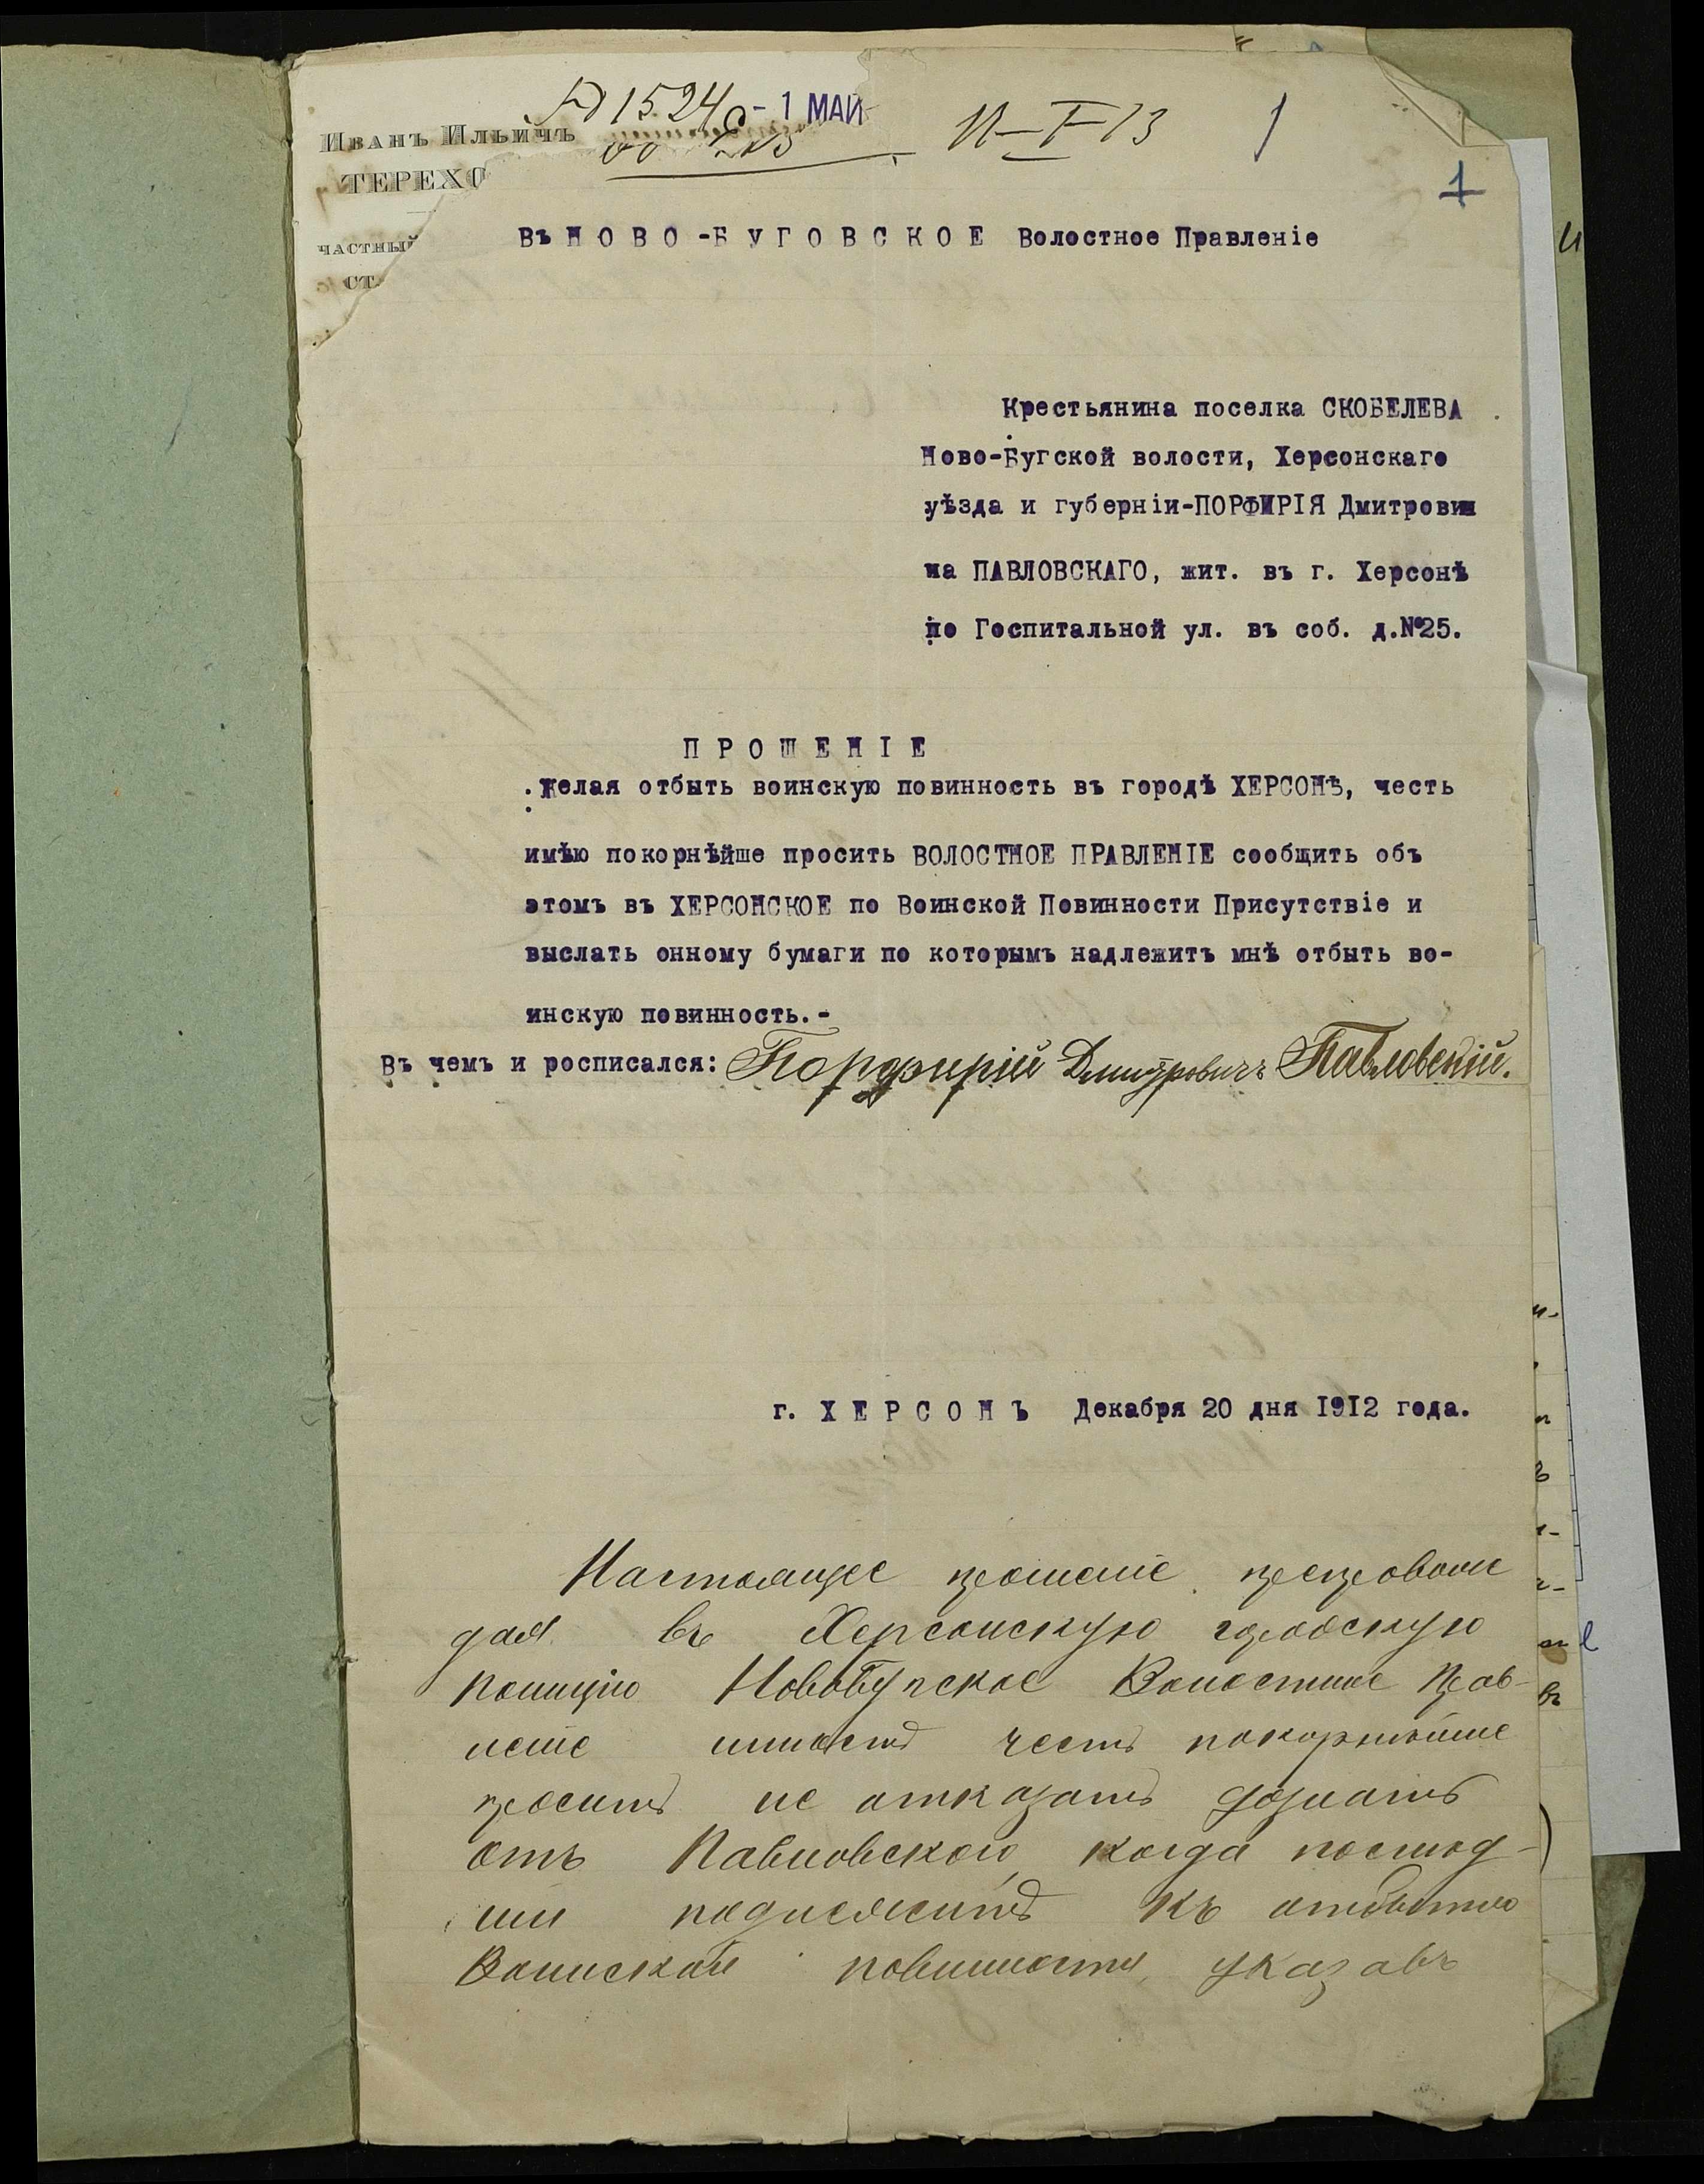 № 1524 - 1 МАЙ 11-I-13 1
1
ИВАНЪ ИЛЬИЧЪ
ТЕРЕХО
ЧАСТНЫЙ
СТ
Въ НОВО-БУГОВСКОЕ Волостное Правленіе
Крестьянина поселка СКОБЕЛЕВА
Ново-Бугской волости, Херсонскаго
уѣзда и губерніи-ПОРФИРІЯ Дмитрович
на ПАВЛОВСКАГО, жит. въ г. Херсонѣ
по Госпитальной ул. въ соб. д.№25.
ПРОШЕНІЕ
Желая отбыть воинскую повинность въ городѣ ХЕРСОНѢ, честь
имѣю покорнѣйше просить ВОЛОСТНОЕ ПРАВЛЕНІЕ сообщить объ
этомъ въ ХЕРСОНСКОЕ по Воинской Повинности Присутствіе и
выслать онному бумаги по которымъ надлежитъ мнѣ отбыть во-
инскую повинность.-
Въ чемъ и росписался: Порфирій Дмитровичъ Павловскій.
г. ХЕРСОНЪ Декабря 20 дня 1912 года.
Настоящее прошеніе препровож
дая въ Херсонскую городскую
полицію Новобугское Волостное Прав-
леніе имѣетъ честь покорнѣйше
проситъ не отказать дознать
отъ Павловского, когда послѣд-
ній подлежитъ къ отбытію
Воинской повинности, указавъ